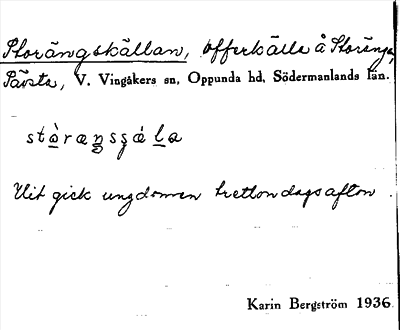 Storängskällan, Offerkälla å Storänga,
Sävsta, V. Vingåkers sn, Oppunda hd, Södermanlands län.
Dit gick ungdomen trettondagsafton.
Karin Bergström 1936